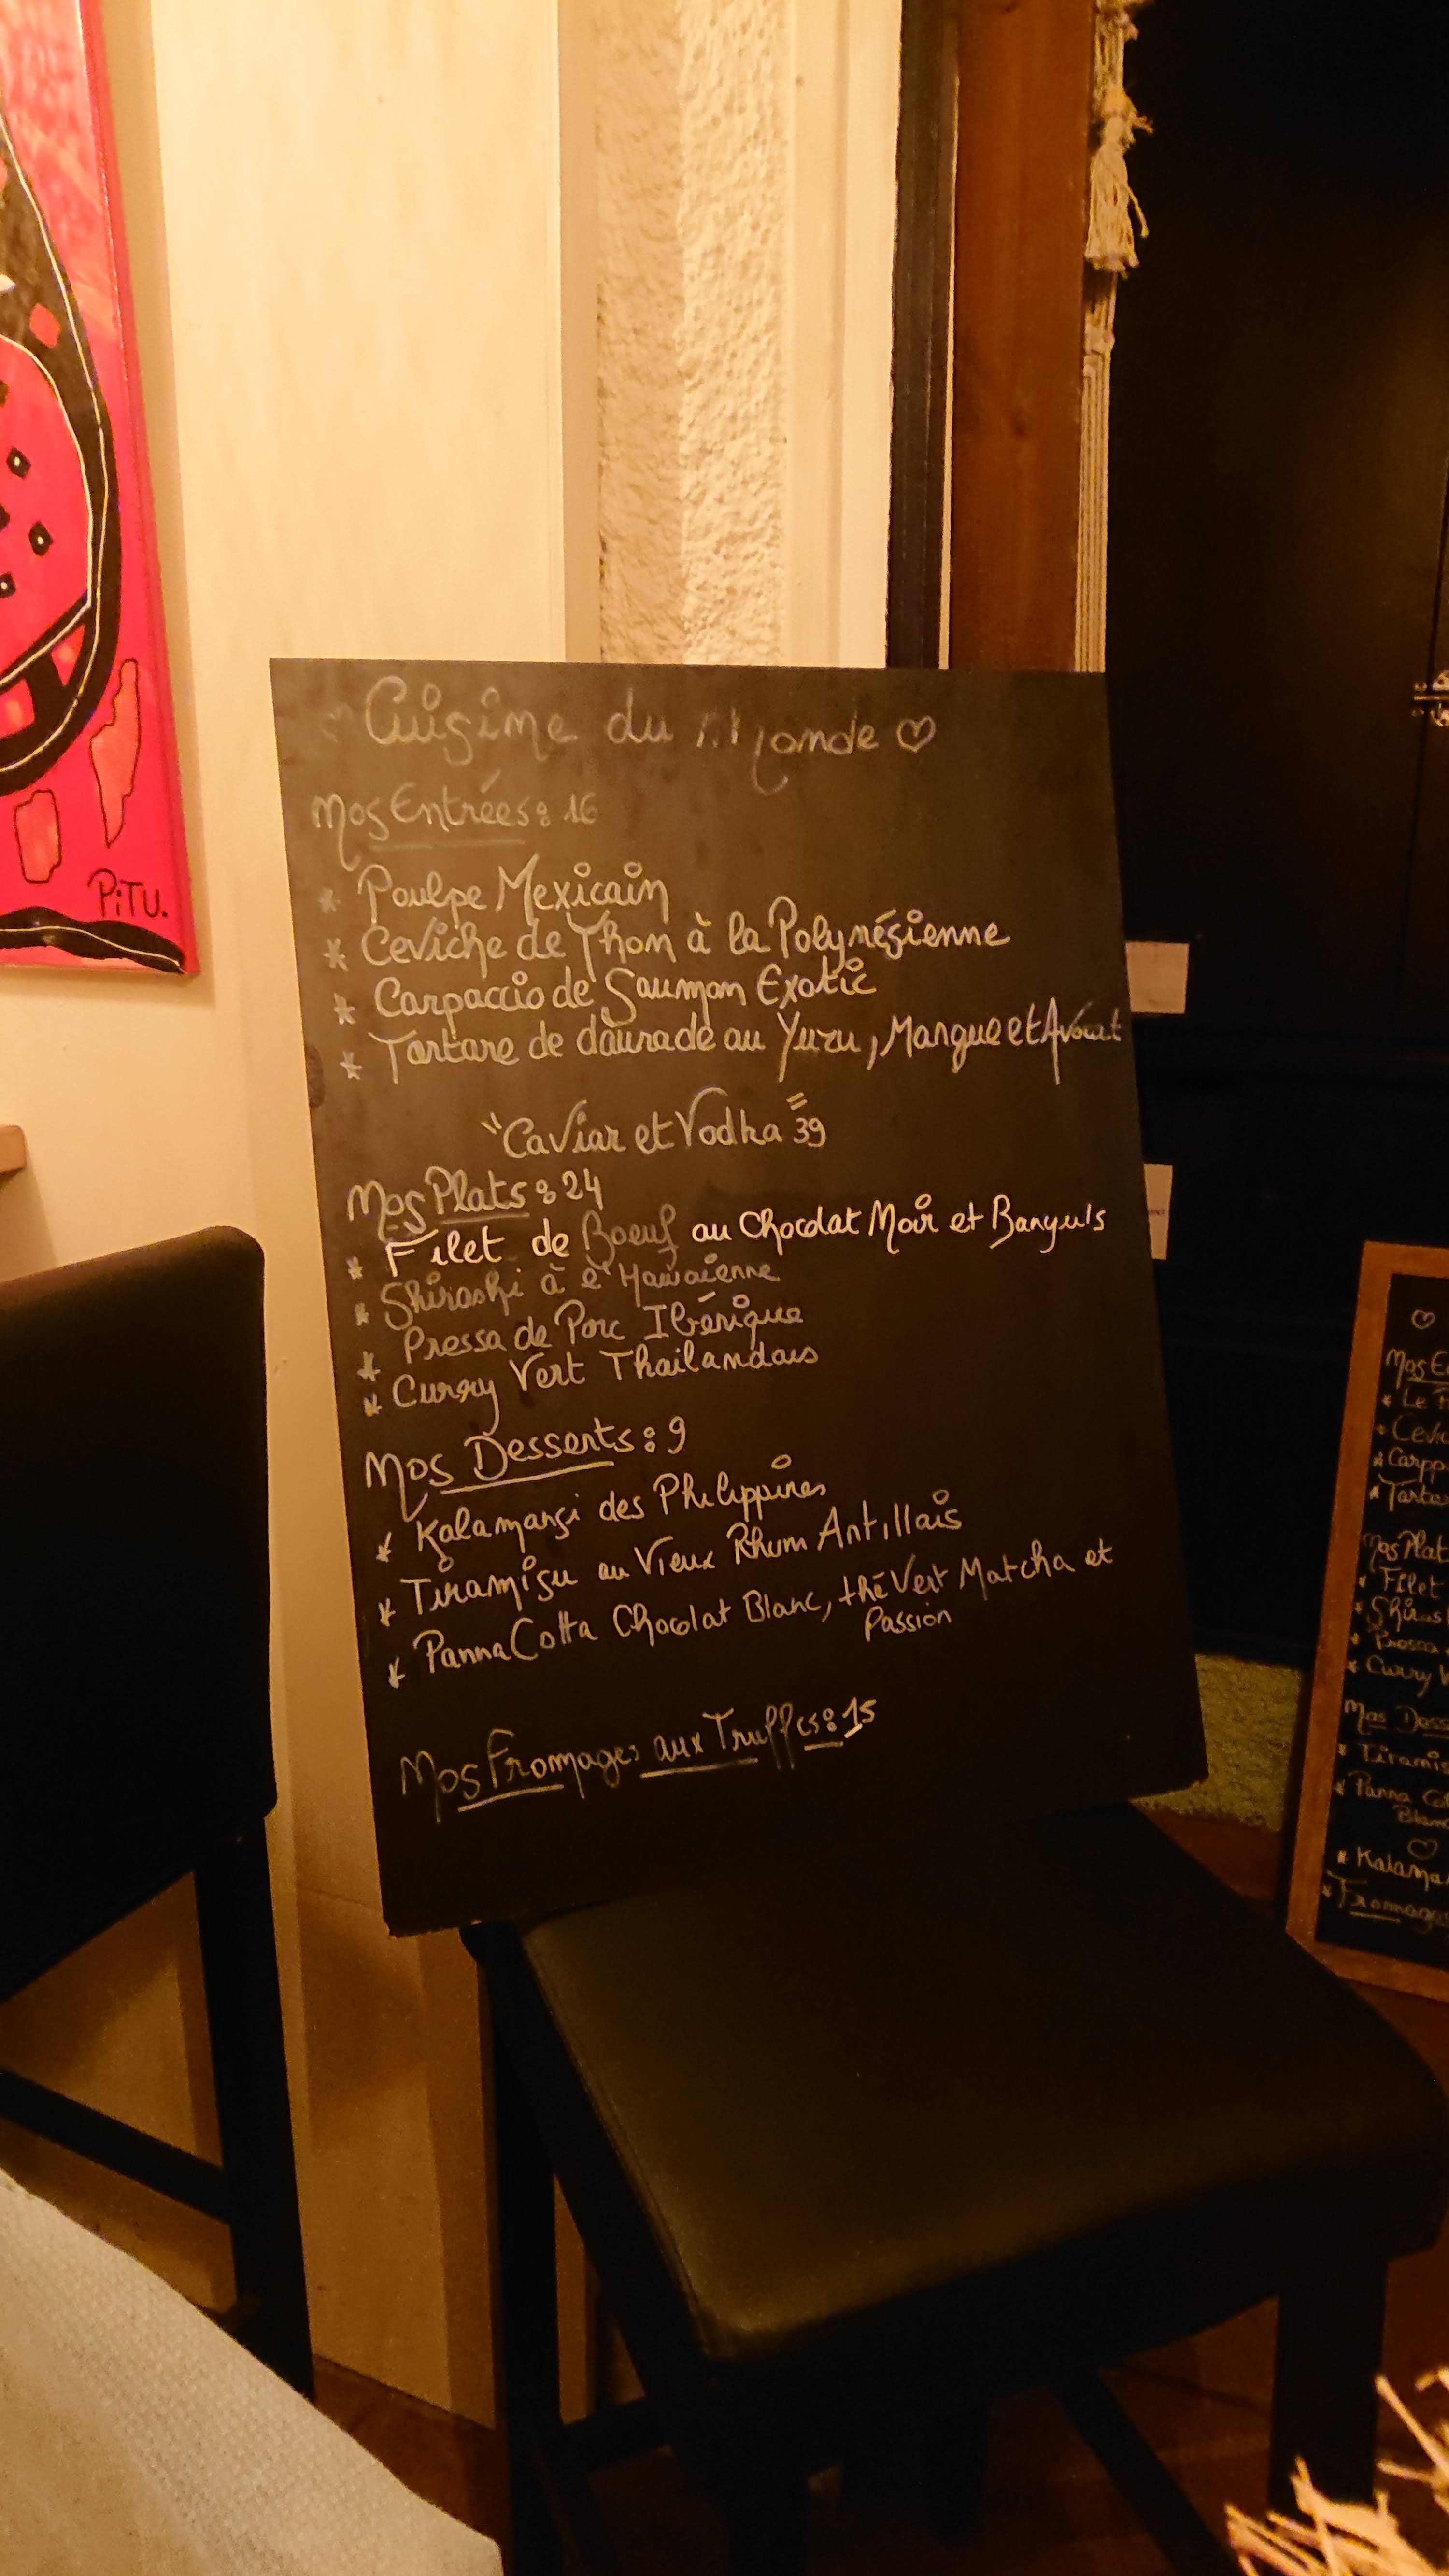 PiTU.
Cuisine du Monde ♡
Nos Entrées : 16
* Poulpe Mexicain
* Ceviche de Thon à la Polynésienne
* Carpaccio de Saumon Exotic
* Tartare de daurade au Yuzu, Mangue et Avocat
"Caviar et Vodka" 39
Nos Plats : 24
* Filet de Boeuf au Chocolat Noir et Banyuls
* Shirashi à l'Hawaïenne
* Pressa de Porc Ibérique
* Curry Vert Thailandais
Nos Desserts : 9
* Kalamansi des Philippines
* Tiramisu au Vieux Rhum Antillais
* Panna Cotta Chocolat Blanc, thé Vert Matcha et
Passion
Nos Fromages aux Truffes : 15
♡
Nos E
* Le
* Cevi
* Carpp
* Tarta
Nos Plat
* Filet
* Shiras
* Pressa
* Curry V
Nos Dess
* Tiramis
* Panna Co
Blanc
♡
* Kalama
* Fromage